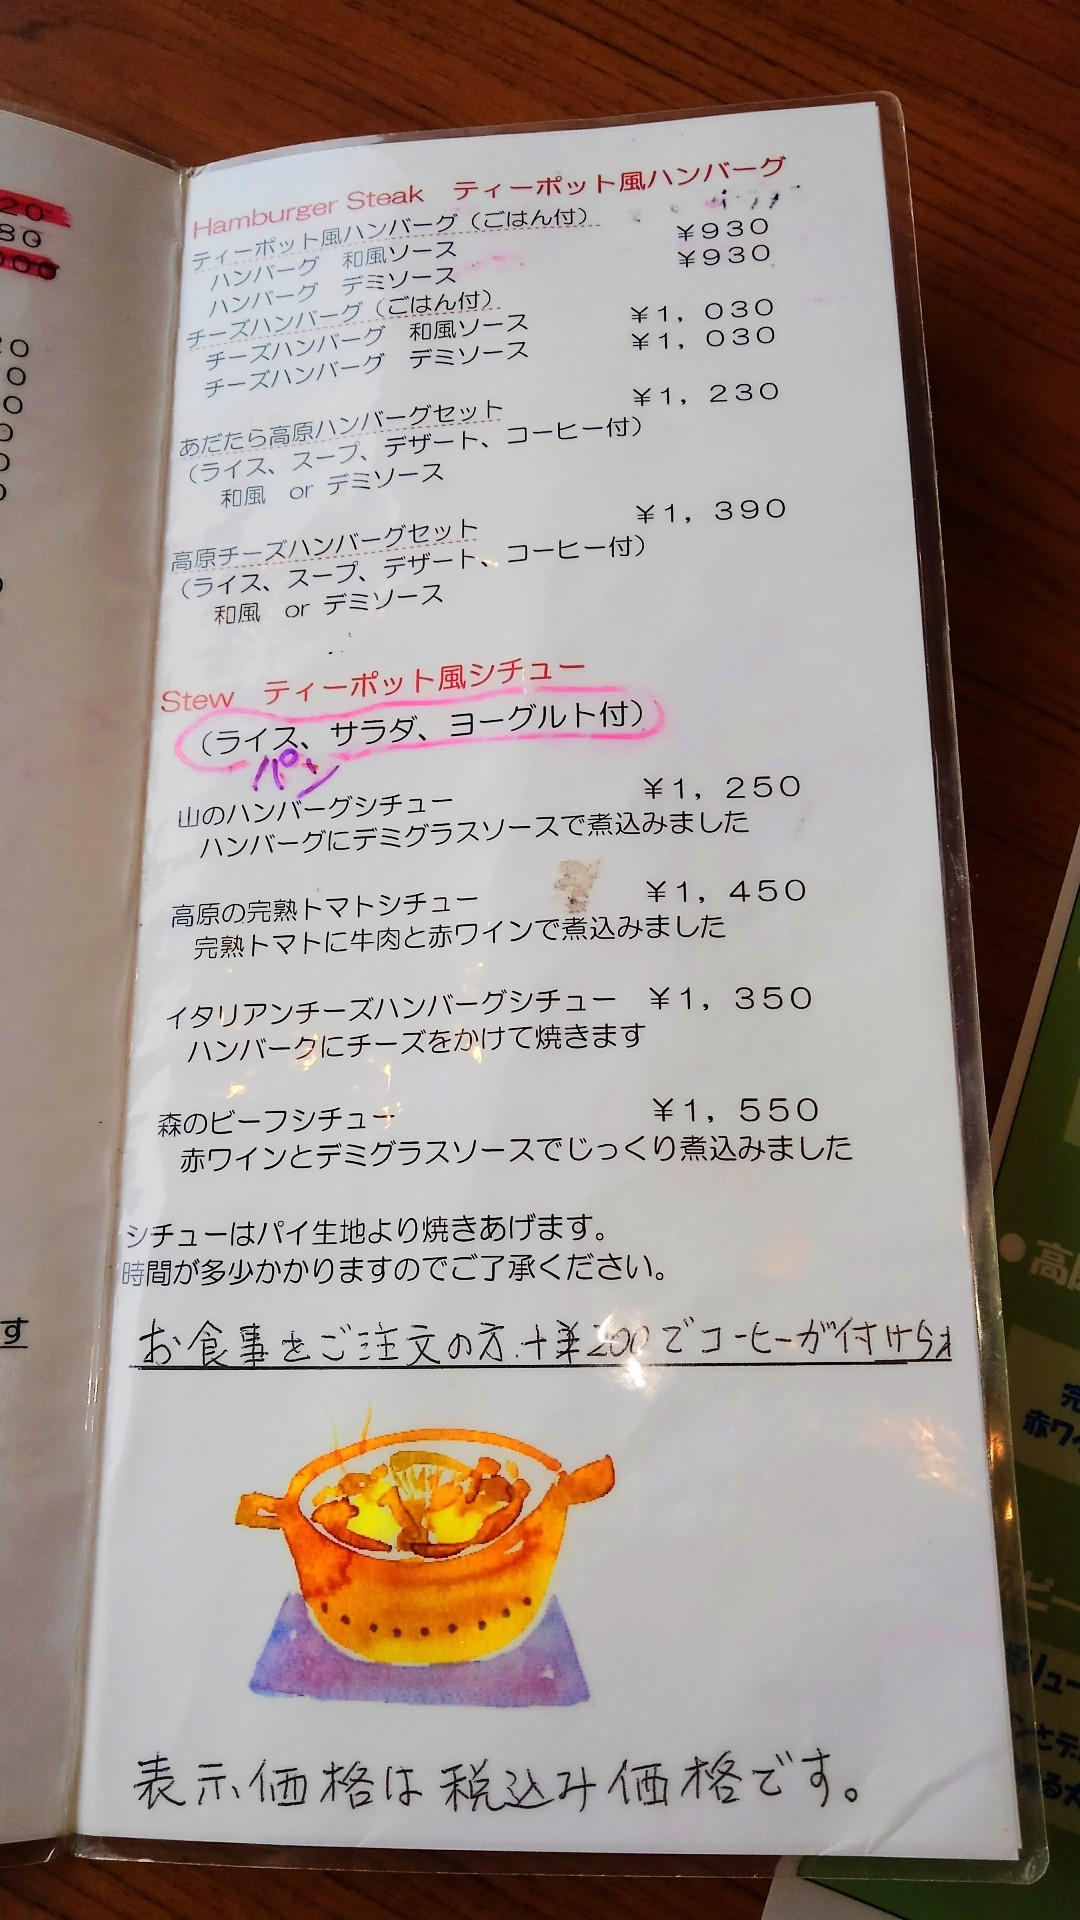 Hamburger Steak ティーポット風ハンバーグ
ティーポット風ハンバーグ（ごはん付）
ハンバーグ 和風ソース ￥930
ハンバーグ デミソース ￥930
チーズハンバーグ（ごはん付）
チーズハンバーグ 和風ソース ￥1，030
チーズハンバーグ デミソース ￥1，030
あだたら高原ハンバーグセット ￥1，230
（ライス、スープ、デザート、コーヒー付）
和風 or デミソース
高原チーズハンバーグセット ￥1，390
（ライス、スープ、デザート、コーヒー付）
和風 or デミソース
Stew ティーポット風シチュー
（ライス、サラダ、ヨーグルト付）
パン
山のハンバーグシチュー ￥1，250
ハンバーグにデミグラスソースで煮込みました
高原の完熟トマトシチュー ￥1，450
完熟トマトに牛肉と赤ワインで煮込みました
イタリアンチーズハンバーグシチュー ￥1，350
ハンバークにチーズをかけて焼きます
森のビーフシチュー ￥1，550
赤ワインとデミグラスソースでじっくり煮込みました
シチューはパイ生地より焼きあげます。
時間が多少かかりますのでご了承ください。
お食事をご注文の方、+¥200でコーヒーが付けら
表示価格は税込み価格です。